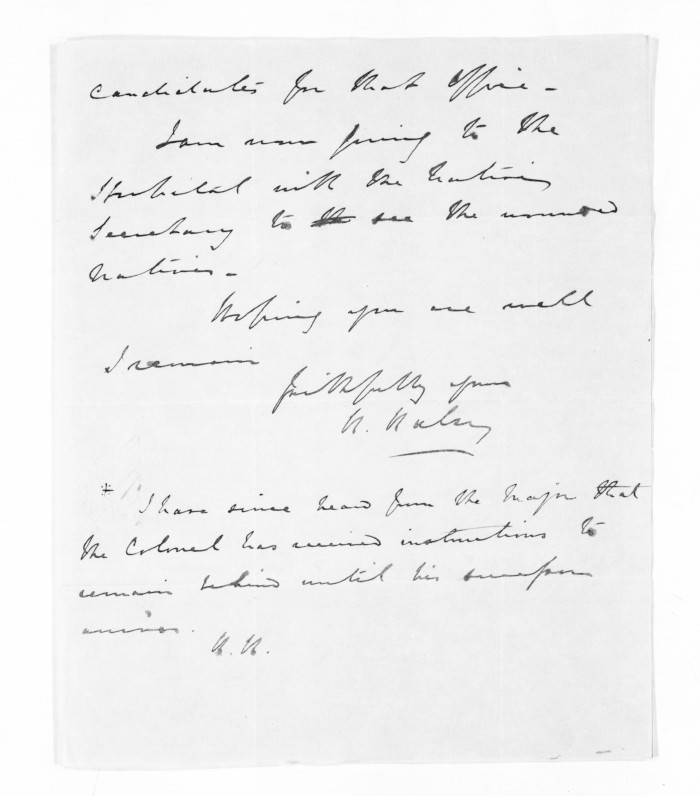 candidates for that Office -
I am now going to the
Hospital with the Native
Secretary to see the wounded
Natives -
Hoping you are well
I remain
faithfully yours
H. Halsey
* I have since heard from the Major that
the Colonel has received instructions to
remain behind until his successor
arrives.
H. H.